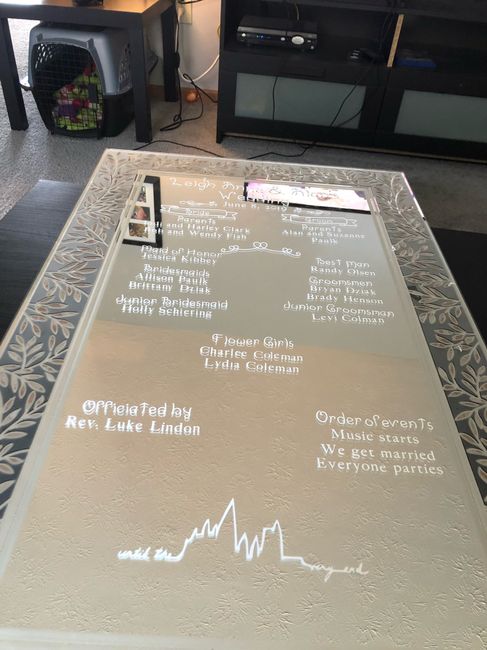 Leigh
Wedding
June 8, 2019
Bride
Parents
and Harley Clark
and Wendy Fish
Groom
Parents
Alan and Suzanne
Paulk
Maid of Honor
Jessica Kibbey
Bridesmaids
Allison Paulk
Brittany Dziak
Junior Bridesmaid
Holly Schiering
Best Man
Randy Olsen
Groomsmen
Bryan Dziak
Brady Henson
Junior Groomsman
Levi Colman
Flower Girls
Charlee Coleman
Lydia Coleman
Officiated by
Rev. Luke Lindon
Order of events
Music starts
We get married
Everyone parties
until the very end